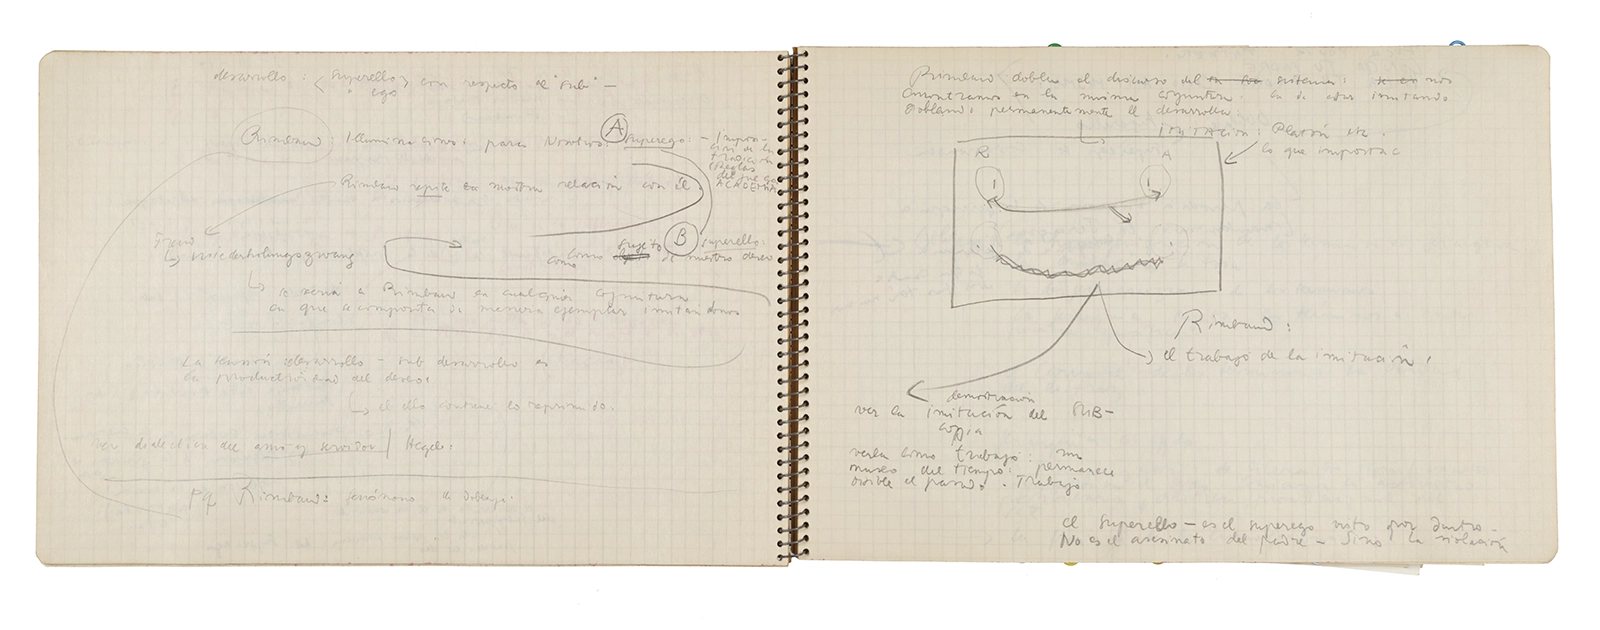 desarrollo: < superello > con respecto al "sub" —
" ego
Rimbaud: Illuminaciones: para Nosotros: A superego: —
tradición
(Reglas
del juego
ACADEMIA
Rimbaud repite en nuestra relación con él.
Freud
↳ wiederholungszwang
B superello:
como sujeto de nuestro deseo
como
↳ Rimbaud en cualquier coyuntura
en que se comporta de manera ejemplar imitandonos
La tensión desarrollo — sub desarrollo es
la productividad del deseo.
↳ el ello contiene lo reprimido.
ver dialéctica del amo y servidor / Hegel:
Pq Rimbaud: fenómeno de doblaje.
Rimbaud dobla el discurso del sistema: nos
encontramos en la misma coyuntura. la de estar imitando
doblando permanentemente el desarrollo.
IMITACION: Platón etc.
lo que importa
R A
1 1
Rimbaud:
el trabajo de la imitación.
demostración
ver la imitación del SUB-
copia
verla como trabajo: un
museo del tiempo: permanece
visible el pasado. - Trabajo
el superello — es el superego visto por dentro —
No es el asesinato del padre — sino la violación